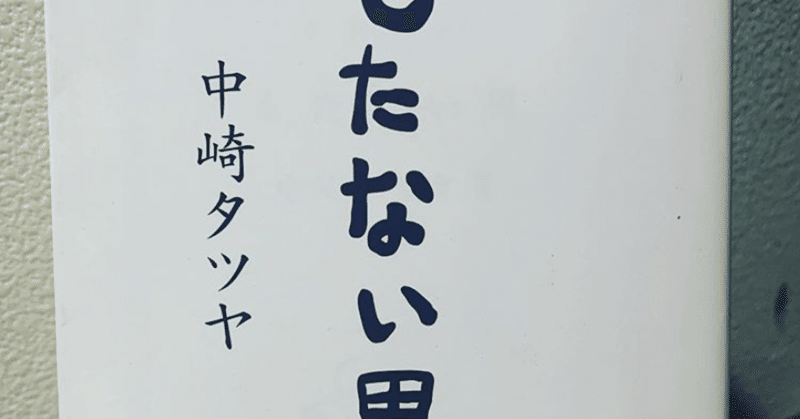 もたない男
中崎タツヤ